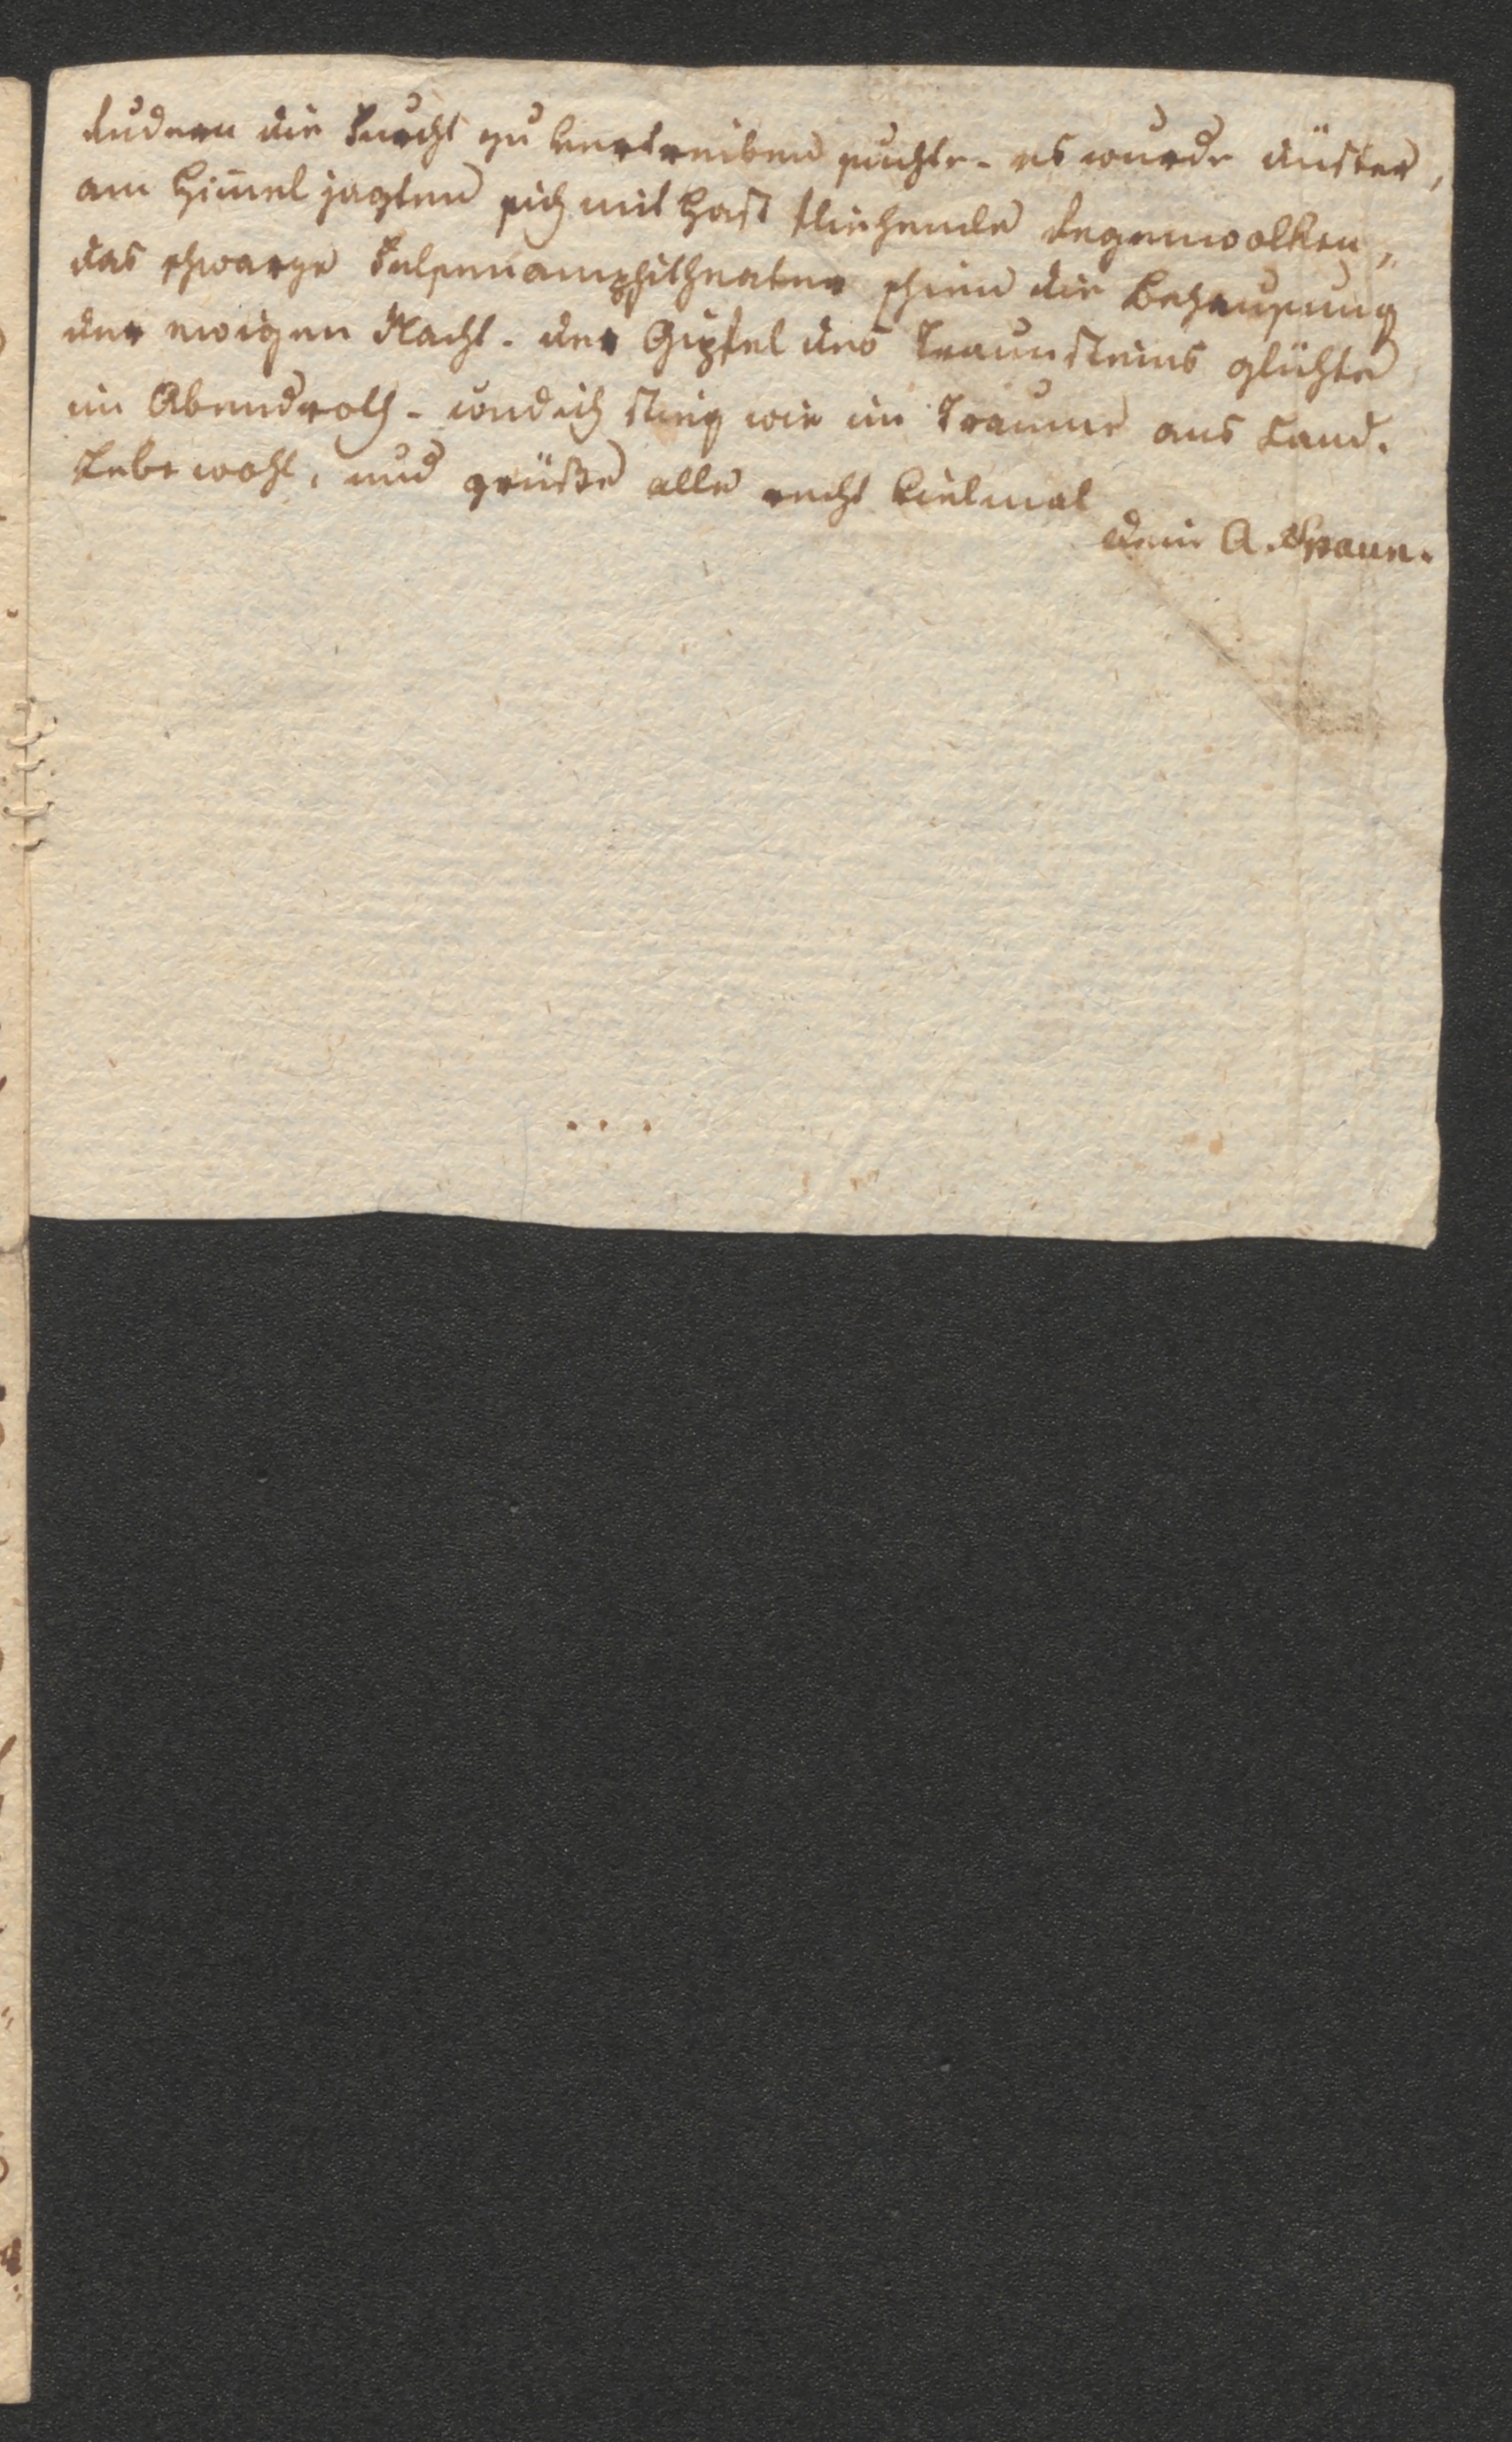 Rudern die Furcht zu vertreiben suchte - es wurde düster,
am Him̅el jagten sich mit Hast fliehende Regenwolken,
das schwarze Felsenamphitheater schien die Behausung
der ewigen Nacht - der Gipfel des Traunsteins glühte
im Abendroth - und ich stieg wie im Traume ans Land.
Lebe wohl, und grüße alle recht vielmal
Dein A. Spaun.